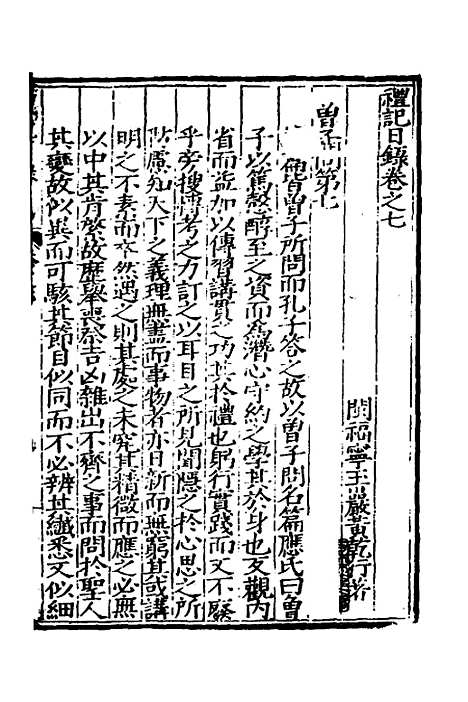 禮記日錄卷之七
閩福寧玉巖黃乾行著
曾子問第七
篇皆曾子所問而孔子答之故以曾子問名篇應氏曰曾
子以篤殼醇至之資而為濳心守約之學其於身也反觀內
省而益加以傳習講貫之功其於禮也躬行實踐而又不廢
乎旁搜博考之力訂之以耳目之所見聞隱之於心思之所
防慮知天下之義理無盡而事物者亦日新而無窮其或講
明之不素而卒然遇之則其處之未究其精微而應之必無
以中其肯綮故歷舉喪祭吉凶雜出不齊之事而問於聖人
其變故似異而可駭其節目似同而不必辨其纖悉文似細